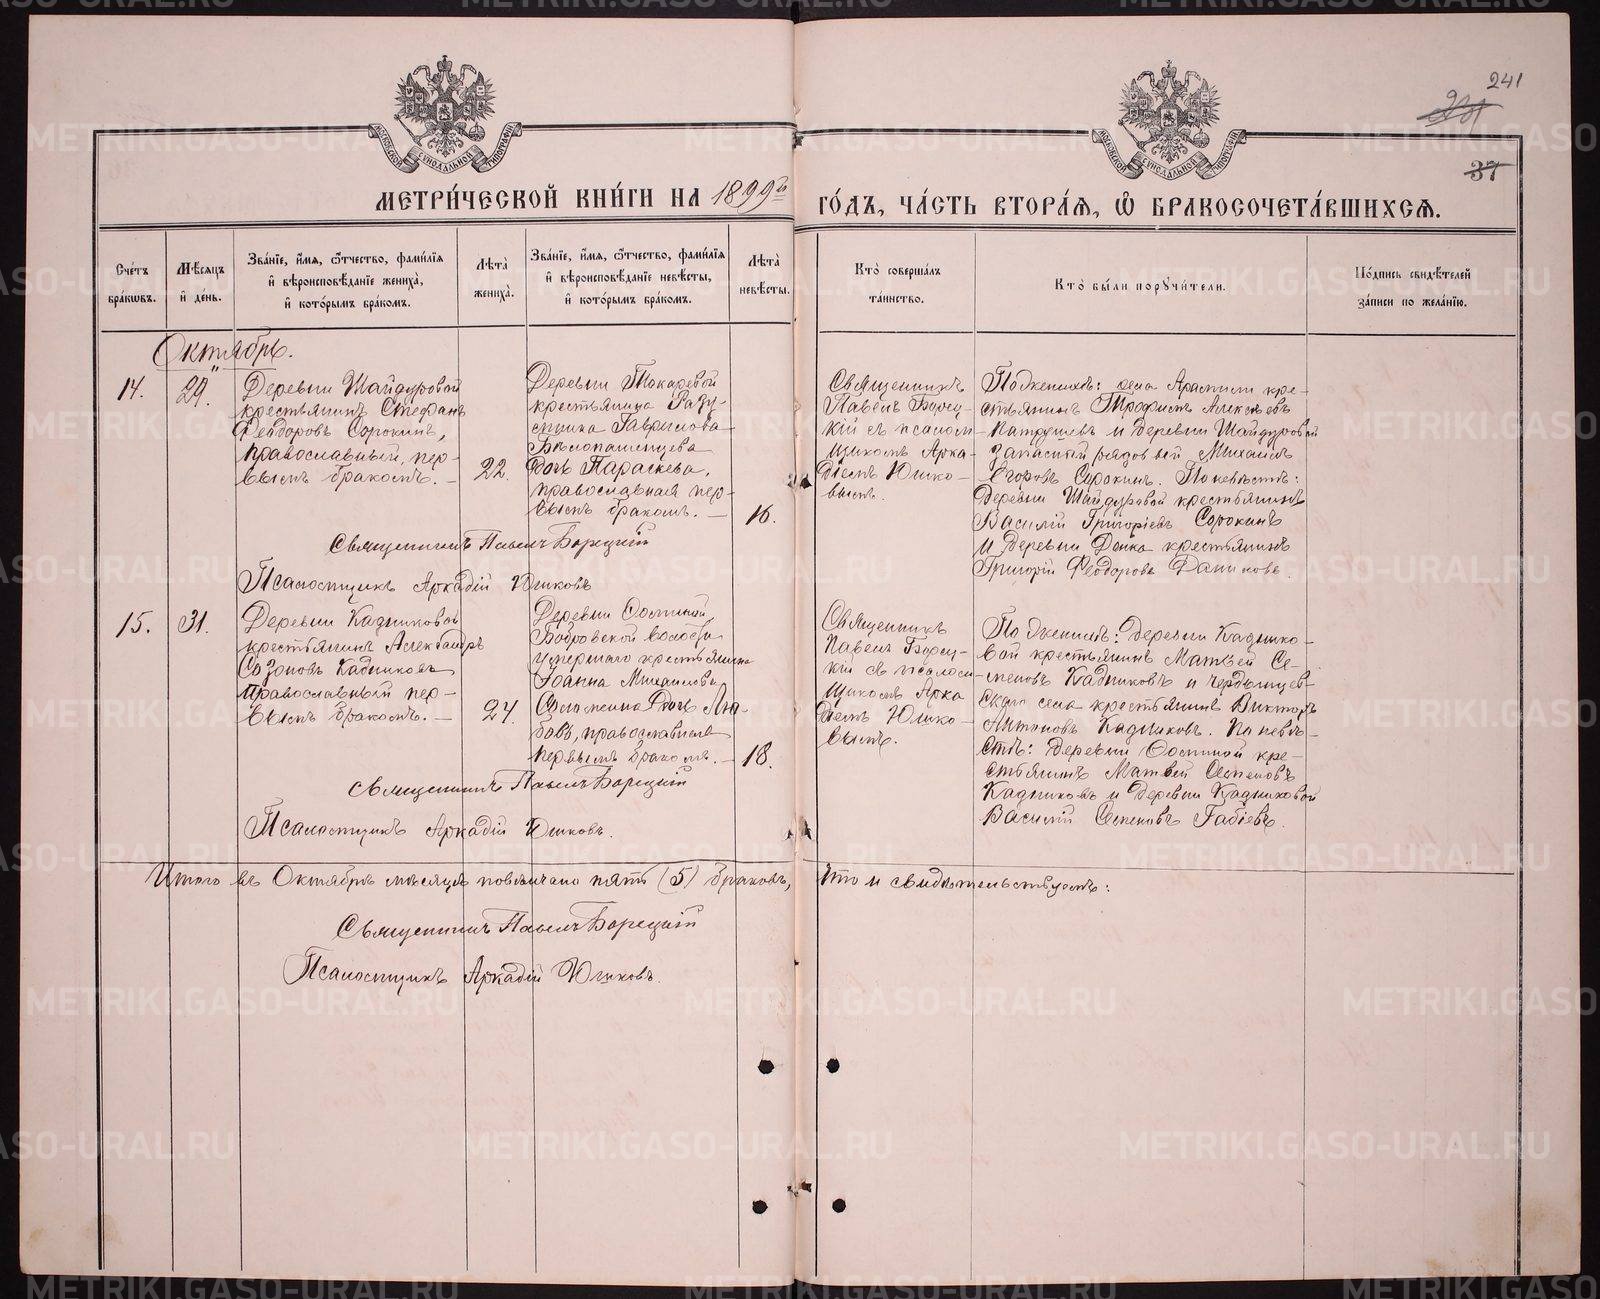 241
37
МОСКОВСКОЙ СѴНОДАЛЬНОЙ ТИПОГРАФІИ
МОСКОВСКОЙ СѴНОДАЛЬНОЙ ТИПОГРАФІИ
МЕТРИ́ЧЕСКОЙ КНИ́ГИ НА 1899й
ГО́ДЪ, ЧА́СТЬ ВТОРА́Ѧ, Ѡ҆ БРАКОСОЧЕТА́ВШИХСѦ.
Сче́тъ бра́кѡвъ.
Мѣ́сѧцъ и҆ де́нь.
Зва́нїе, и҆́мѧ, ѻ҆́тчество, фами́лїѧ
и҆ вѣроисповѣ́данїе жениха̀,
и҆ кото́рымъ бра́комъ.
Лѣта̀ жениха̀.
Зва́нїе, и҆́мѧ, ѻ҆́тчество, фами́лїѧ
и҆ вѣроисповѣ́данїе невѣ́сты,
и҆ кото́рымъ бра́комъ.
Лѣта̀ невѣ́сты.
Кто̀ соверша́лъ
та́инство.
Кто̀ бы́ли порꙋчи́тели.
По́дпись свидѣ́телей
за́писи по жела́нїю.
Октябрь.
14.
29.
Деревни Шайдуровой
крестьянинъ Стефанъ
Феодоровъ Сорокинъ,
православный, пер-
вымъ бракомъ. —
22.
Деревни Токаревой
крестьянина
Гаврилова
Бѣлопашенцева
дочь Параскева,
православная пер-
вымъ бракомъ. —
16.
Священникъ
Павелъ Борец-
кій съ псалом-
щикомъ Арка-
діемъ Юшко-
вымъ.
По женихѣ: села Арамили кре-
стьянинъ Трофимъ Алексѣевъ
Патрушевъ и деревни Шайдуровой
запасный рядовой Михаилъ
Егоровъ Сорокинъ. По невѣстѣ:
деревни Шайдуровой крестьянинъ
Василій Григоріевъ Сорокинъ
и деревни крестьянинъ
Григорій Феодоровъ
Священникъ Павелъ Борецкій
Псаломщикъ Аркадій Юшковъ
15.
31.
Деревни Кадниковой
крестьянинъ Александръ
Созоновъ Кадниковъ
православный пер-
вымъ бракомъ. —
24.
Деревни
Бобровской волости
умершаго крестьянина
Іоанна Михаилова
дочь Лю-
бовь, православная
первымъ бракомъ. —
18.
Священникъ
Павелъ Борец-
кій съ псалом-
щикомъ Арка
діемъ Юшко-
вымъ.
По женихѣ: деревни Каднико-
вой крестьянинъ Матвѣй Се-
меновъ Кадниковъ и Чердынцев-
скаго села крестьянинъ Викторъ
Антоновъ Кадниковъ. По невѣ-
стѣ: деревни кре-
стьянинъ Матвѣй
Кадниковъ и деревни Кадниковой
Василій
Священникъ Павелъ Борецкій
Псаломщикъ Аркадій Юшковъ.
Итого въ Октябрѣ мѣсяцѣ повѣнчано пять (5) браковъ, что и свидѣтельствуемъ:
Священникъ Павелъ Борецкій
Псаломщикъ Аркадій Юшковъ.
METRIKI.GASO-URAL.RU